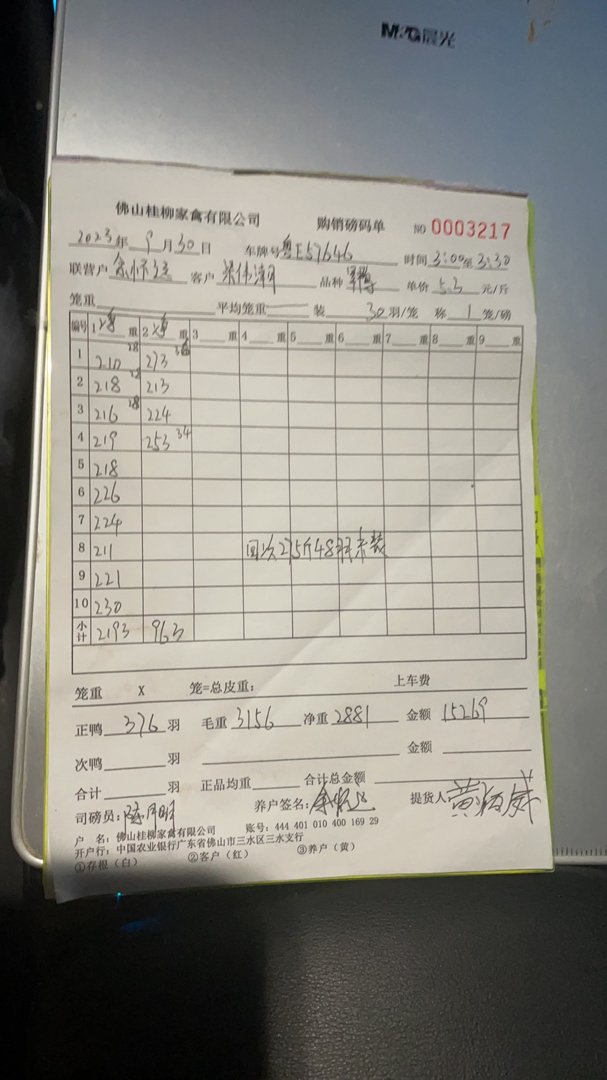 M&G晨光
佛山桂柳家禽有限公司 购销磅码单 NO 0003217
2023年 9月30日 车牌号粤E57646 时间3:00至3:30
联营户 客户 梁伟 品种 单价 5.3 元/斤
笼重 平均笼重 装 30羽/笼 称 1 笼/磅
编号 1 重 2 重 3 重 4 重 5 重 6 重 7 重 8 重 9 重
1 210 28 273 36
2 218 213
3 216 28 224
4 219 253 34
5 218
6 226
7 224
8 211 回次275斤48只未装
9 221
10 230
小计 2193 963
笼重 X 笼=总皮重: 上车费
正鸭 376 羽 毛重 3156 净重 2881 金额 15269
次鸭 羽 金额
合计 羽 正品均重 合计总金额
司磅员: 养户签名: 提货人
户 名: 佛山桂柳家禽有限公司 账号: 444 401 010 400 169 29
开户行: 中国农业银行广东省佛山市三水区三水支行
①存根(白) ②客户(红) ③养户(黄)